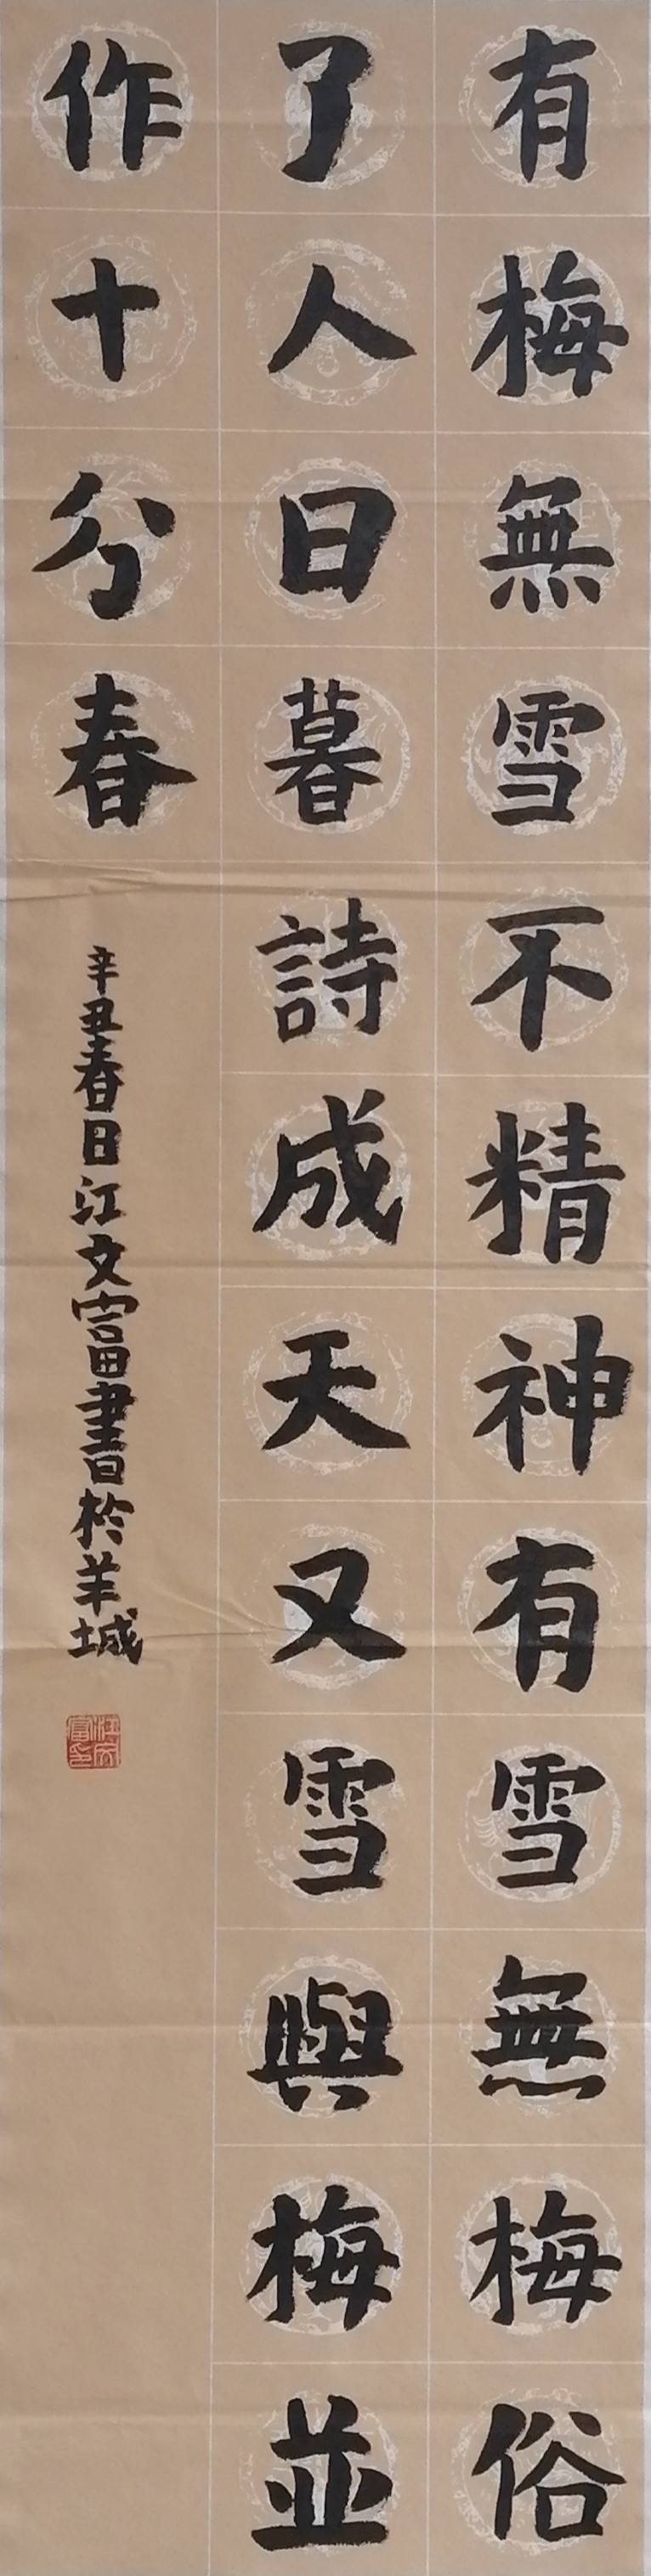 有梅無雪不精神有雪無梅俗
了人日暮詩成天又雪與梅並
作十分春
辛丑春日江文富書於羊城
江文富印